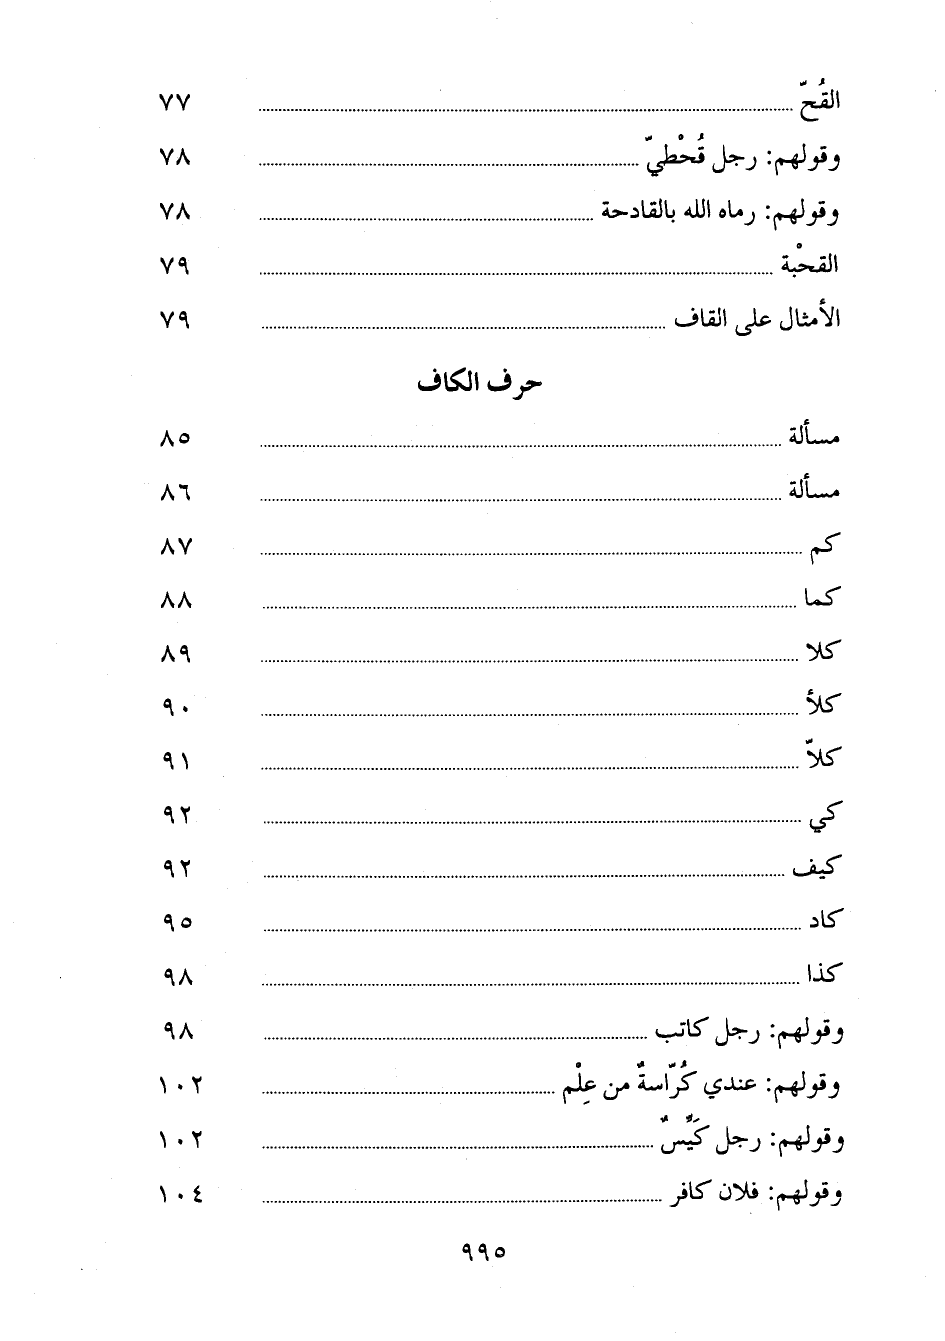 القُحّ ........ ٧٧
وقولهم: رجل قُحْطيّ ........ ٧٨
وقولهم: رماه الله بالقادحة ........ ٧٨
القحْبة ........ ٧٩
الأمثال على القاف ........ ٧٩
حرف الكاف
مسألة ........ ٨٥
مسألة ........ ٨٦
كم ........ ٨٧
كما ........ ٨٨
كلا ........ ٨٩
كلأ ........ ٩٠
كلاّ ........ ٩١
كي ........ ٩٢
كيف ........ ٩٢
كاد ........ ٩٥
كذا ........ ٩٨
وقولهم: رجل كاتب ........ ٩٨
وقولهم: عندي كُرّاسةٌ من عِلْم ........ ١٠٢
وقولهم: رجل كَيِّسٌ ........ ١٠٢
وقولهم: فلان كافر ........ ١٠٤
٩٩٥